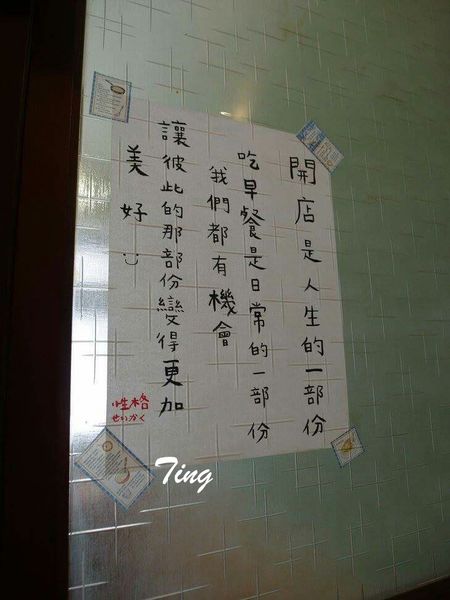 開店是人生的一部份
吃早餐是日常的一部份
我們都有機會
讓彼此的那部份變得更加
美好
性格
せいかく
Ting